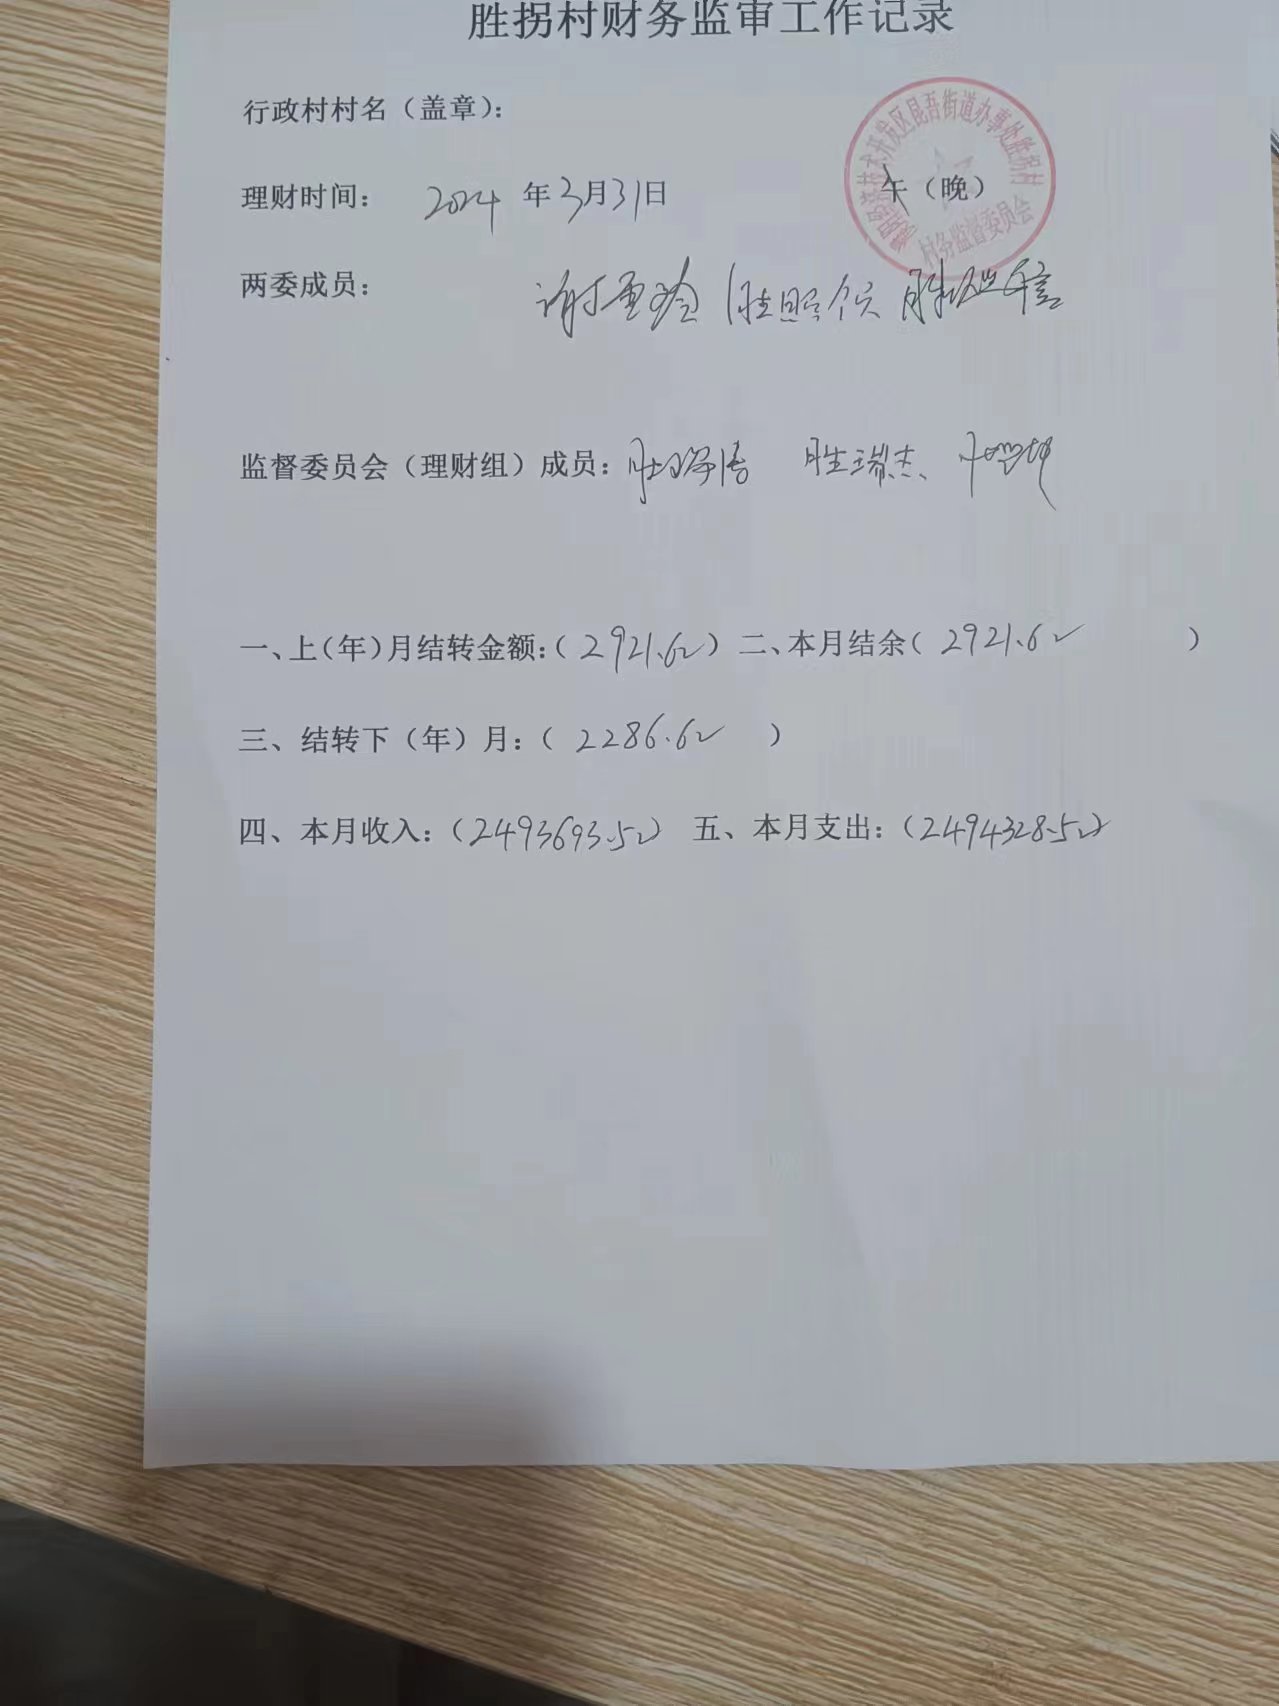 胜拐村财务监审工作记录
行政村村名（盖章）：
开发区昆吾街道办事处胜拐村
村务监督委员会
理财时间： 2024 年3月31日 午（晚）
两委成员：
监督委员会（理财组）成员： 胜瑞杰
一、上（年）月结转金额：（2921.62）二、本月结余（2921.62）
三、结转下（年）月：（2286.62）
四、本月收入：（2493693.52） 五、本月支出：（2494328.52）